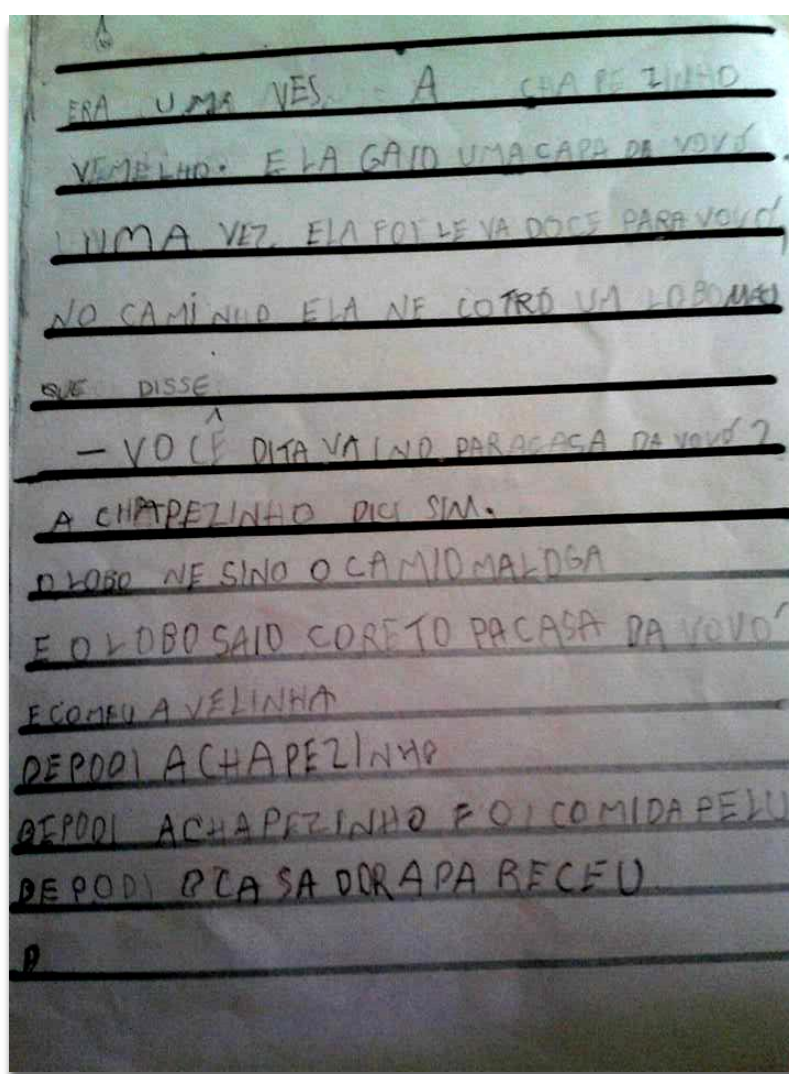 ERA UMA VES A CHAPEZINHO
VEMELHO. ELA GAIO UMA CAPA DA VOVÓ
UMA VEZ ELA FOI LEVA DOCE PARA VOVÓ,
NO CAMINHO ELA NE COTRO UM LOBO MAU
QUE DISSE
— VOCÊ DITA VA INO PARA CASA DA VOVÓ?
A CHAPEZINHO DICI SIM.
O LOBO NE SINO O CAMIO MALOGA
E O LOBO SAIO CORETO PA CASA DA VOVÓ
E COMEU A VELINHA
DEPODI A CHAPEZINHO
DEPODI ACHAPEZINHO FOI COMIDA PELU
DEPODI O CASADOR APARECEU